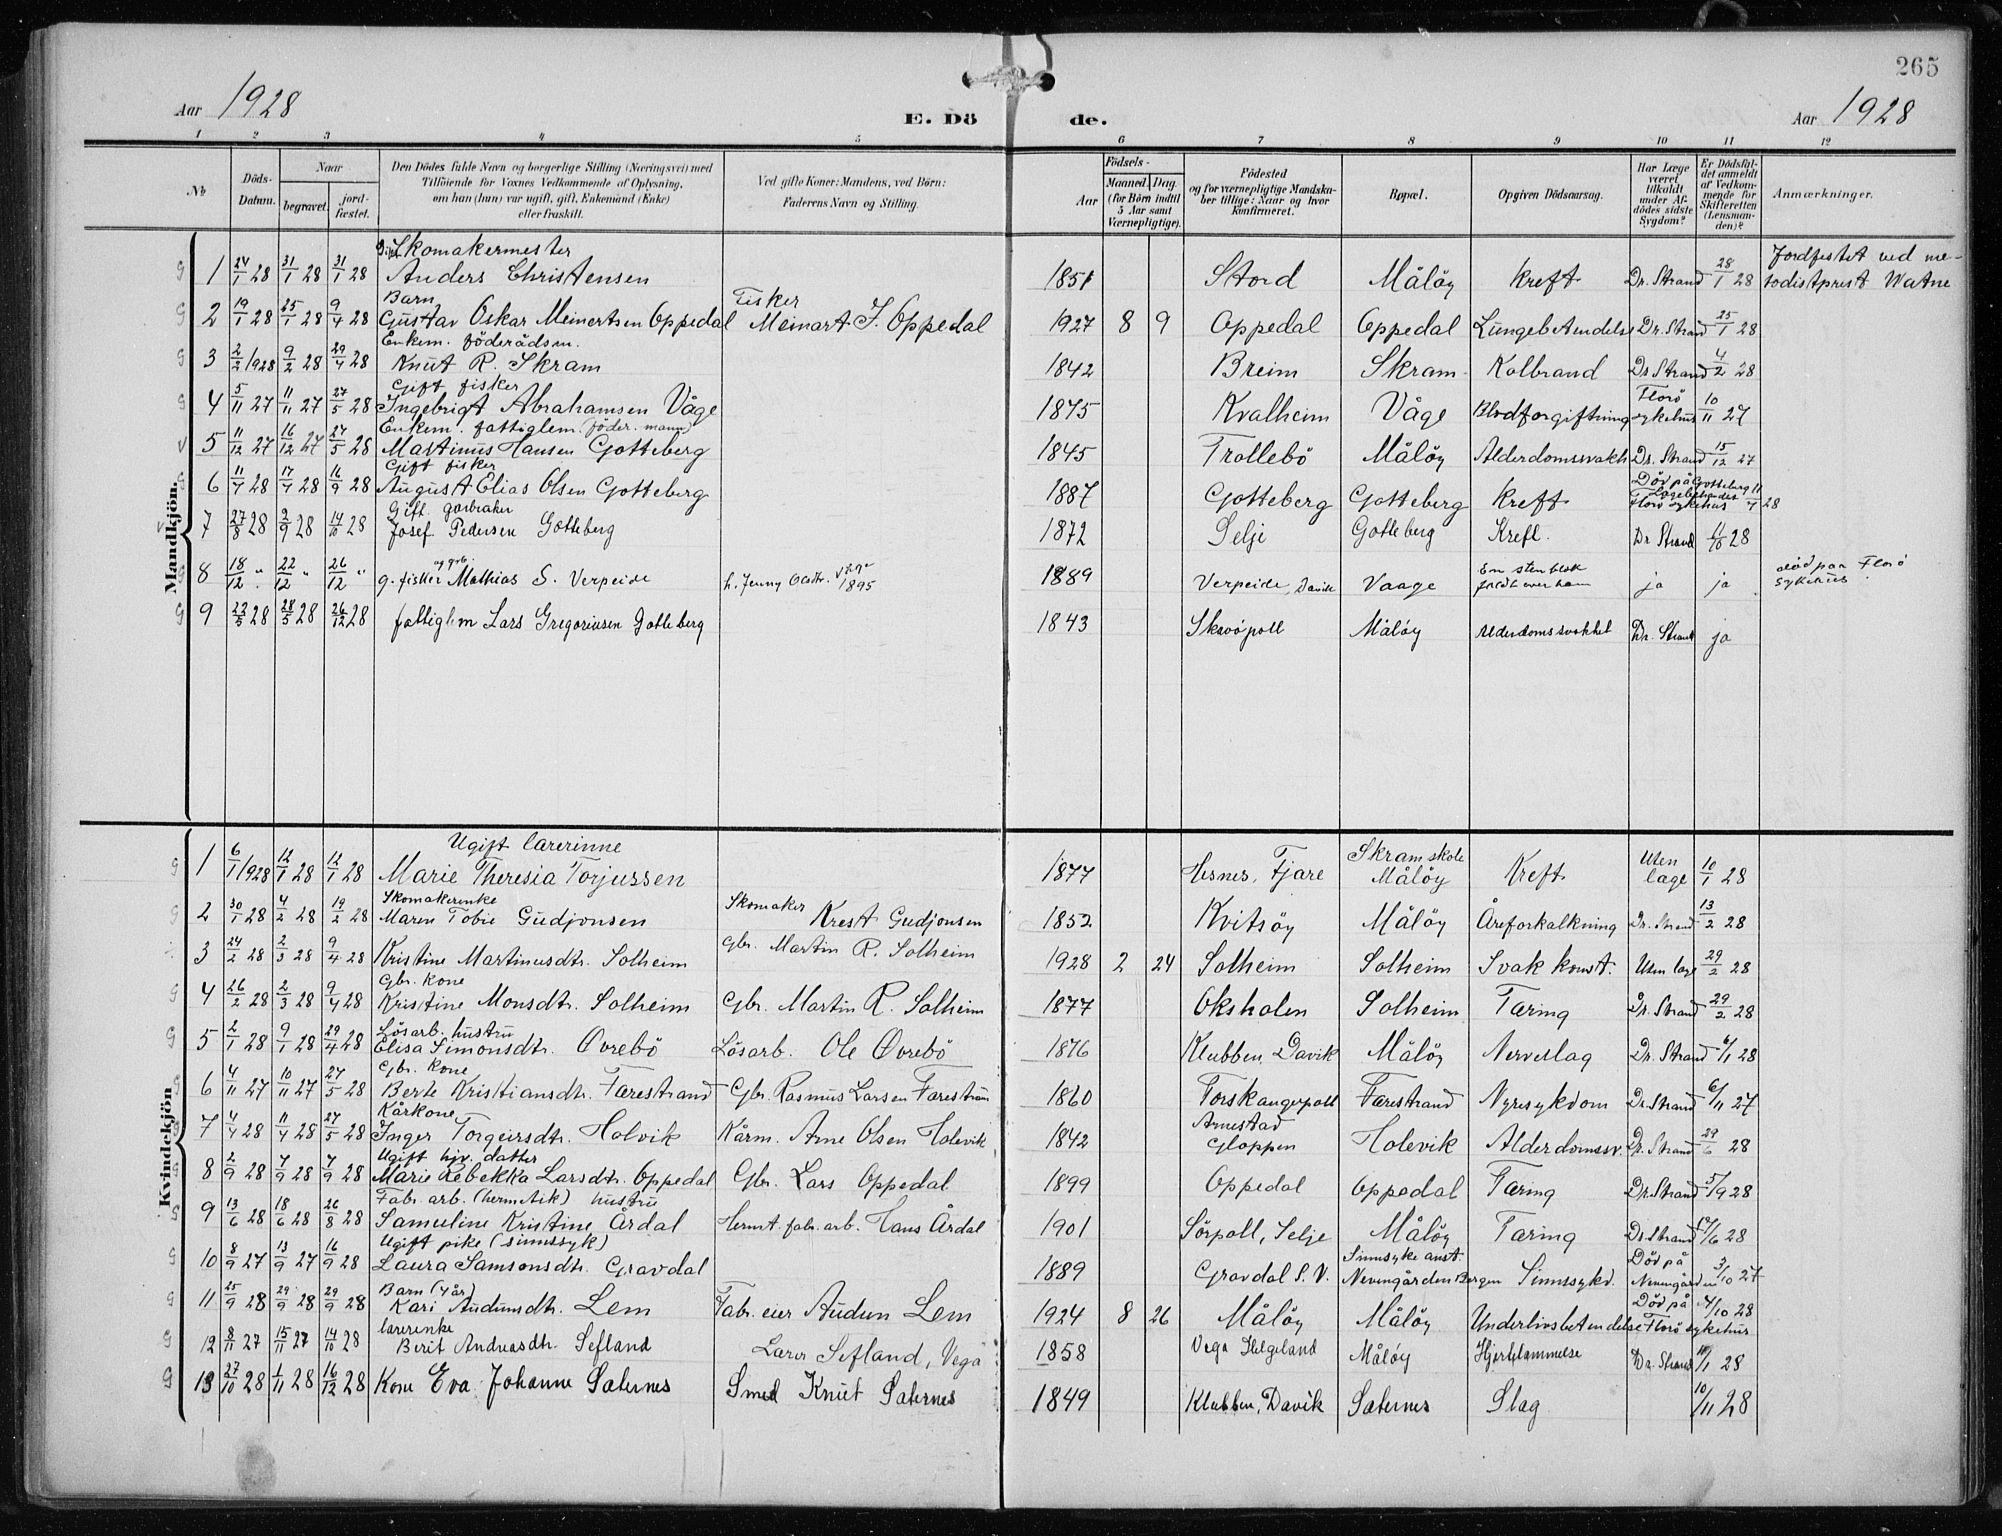 265
Aar 1928
E. Dö de.
Aar 1928
1 2 3 4 5 6 7 8 9 10 11 12
No
Döds-Datum.
Naar
begravet.
jord-fæstet.
Den Dödes fulde Navn og borgerlige Stilling (Næringsvei) med
Tilföiende for Voxnes Vedkommende af Oplysning,
om han (hun) var ugift, gift, Enkemand (Enke)
eller fraskilt.
Ved gifte Koner: Mandens, ved Börn:
Faderens Navn og Stilling.
Födsels-
Aar
Maaned. Dag.
(for Börn indtil
5 Aar samt
Værnepligtige).
Födested
og for værnepligtige Mandska-
ber tillige: Naar og hvor
konfirmeret.
Bopæl.
Opgiven Dödsaarsag.
Har Læge
været
tilkaldt
under Af-
dödes sidste
Sygdom?
Er Dödsfal-
det anmeldt
af Vedkom-
mende for
Skifteretten
(Lensman-
den)?
Anmærkninger.
Mandkjön.
Gift Skomakermester Jordfestet ved me-
1 24/1 28 31/1 28 31/1 28 Anders Christensen 1851 Stord Måløy Kreft Dr. Strand 28/1 28 todistprest Watne
Barn Fisker
2 19/1 28 25/1 28 9/4 28 Gustav Oskar Meinertsen Oppedal Meinart J. Oppedal 1927 8 9 Oppedal Oppedal Lungebetendelse Dr. Strand 25/1 28
Enkem. föderådsm.
3 2/2 1928 9/2 28 29/4 28 Knut R. Skram 1842 Breim Skram Kolbrand Dr. Strand 4/2 28
Gift fisker Florö
4 5/11 27 11/11 27 27/5 28 Ingebrigt Abrahamsen Våge 1875 Kvalheim Våge Blodforgiftning sykehus 10/11 27
Enkem. fattiglem (föder. mann)
5 11/12 27 16/12 27 27/5 28 Martinus Hansen Gotteberg 1845 Trollebö Måløy Alderdomssvakh Dr. Strand 15/12 27
Gift fisker Död på Gotteberg
6 11/7 28 17/7 28 16/9 28 August Elias Olsen Gotteberg 1887 Gotteberg Gotteberg Kreft Florö sykehus 28
Gift. gårbruker
7 27/8 28 2/9 28 14/10 28 Josef Pedersen Gotteberg 1872 Selje Gotteberg Kreft. Dr Strand 28
og grb. En stenblok död paa Florö
8 18/12 " 22/12 " 26/12 " g. fisker Mathias S. Verpeide h. Jenny 1895 1889 Verpeide, Davik Vaage faldt over ham ja ja sykehus.
9 22/5 28 28/5 28 26/12 28 fattiglem Lars Gregoriusen Gotteberg 1843 Skavöpoll Måløy Alderdomssvakhet Dr. Strand ja
Kvindekjön.
Ugift lærerinne Skram skole Uten
1 6/1 1928 12/1 28 12/1 28 Marie Theresia Torjussen 1877 Hesnes, Fjære Måløy Kreft læge 10/1 28
Skomakerenke Skomaker
2 30/1 28 4/2 28 19/2 28 Maren Tobie Gudjonsen Krest Gudjonsen 1852 Kvitsöy Måløy Åreforkalkning Dr. Strand 13/2 28
3 24/2 28 2/3 28 9/4 28 Kristine Martinusdtr. Solheim Gbr. Martin R. Solheim 1928 2 24 Solheim Solheim Svak konst. Uten læge 29/2 28
Gbr. kone
4 26/2 28 2/3 28 9/4 28 Kristine Monsdtr. Solheim Gbr. Martin R. Solheim 1877 Oksholen Solheim Tæring Dr. Strand 29/2 28
Lösarb. hustru
5 2/1 28 9/1 28 29/4 28 Elisa Simonsdtr. Øvrebö Lösarb. Ole Øvrebö 1876 Klubben, Davik Måløy Nerveslag Dr. Strand 6/1 28
Gbr. kone
6 4/11 27 10/11 27 27/5 28 Berte Kristiansdtr. Færestrand Gbr. Rasmus Larsen Færestrand 1860 Torskangerpoll Færestrand Nyresykdom Dr. Strand 6/11 27
Kårkone Arnestad
7 4/4 28 11/4 28 27/5 28 Inger Torgeirsdtr. Holvik Kårm. Arne Olsen Holevik 1842 Gloppen Holevik Alderdomssv. Dr. Strand 29/6 28
Ugift hjv. datter
8 2/9 28 7/9 28 7/9 28 Marie Rebekka Larsdtr. Oppedal Gbr. Lars Oppedal 1899 Oppedal Oppedal Tæring Dr. Strand 5/9 28
Fabr. arb. (hermetik) hustru
9 13/6 28 18/6 28 26/8 28 Samueline Kristine Årdal Hermt. fabr. arb. Hans Årdal 1901 Sörpoll, Selje Måløy Tæring Dr. Strand 28
Ugift pike (sinnssyk) Sinnsyke anst. Död på
10 8/9 27 13/9 27 16/9 28 Laura Samsonsdtr. Gravdal 1889 Gravdal S. V. Nevengården Bergen Sinnssykd. Nevengården 3/10 27
Barn (4 år) Död på
11 25/9 28 29/9 28 29/9 28 Kari Audunsdtr. Lem Fabr. eier Audun Lem 1924 8 26 Måløy Måløy Underlivsbetendelse Florö sykehus 4/10 28
lærerenke
12 8/11 27 15/11 27 14/10 28 Berit Andreasdtr. Sefland Lærer Sefland, Vega 1858 Vega Helgeland Måløy Hjertelammelse Dr. Strand 28
13 27/10 28 1/11 28 16/12 28 Kone Eva Johanne Sæternes Smed Knut Sæternes 1849 Klubben, Davik Sæternes Slag 10/11 28